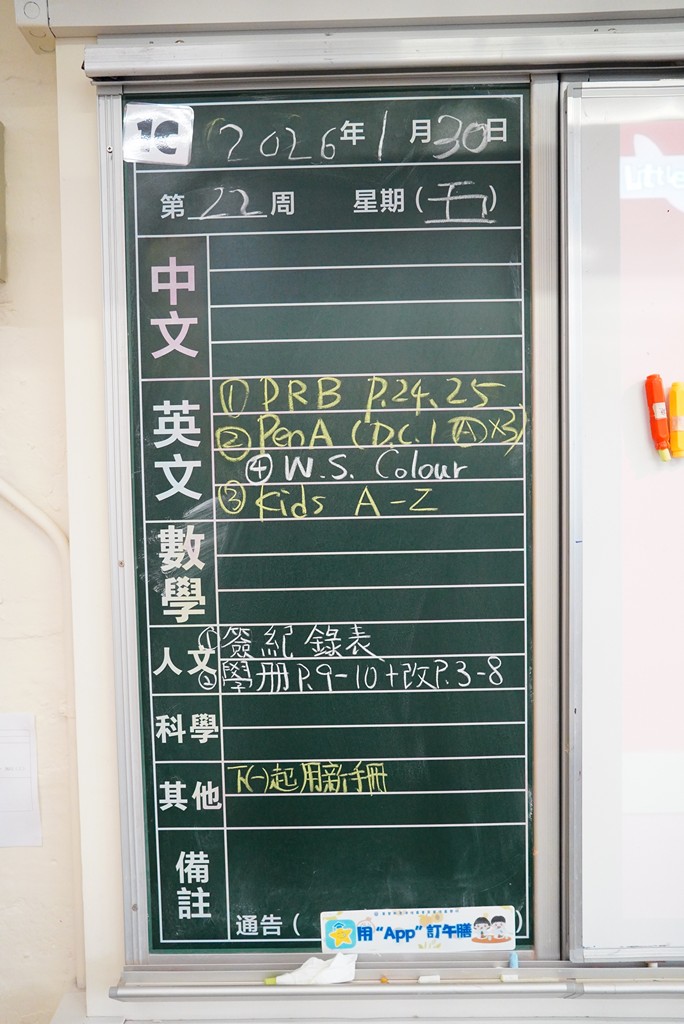 1C 2026年1月30日
第22周 星期(五)
中文
英文
① DRB P.24, 25
② PenA (D.C.1 Ⓐ×3)
④ W.S. Colour
③ Kids A-Z
數學
人文
① 簽紀錄表
② 學册P.9-10+改P.3-8
科學
其他
下(一)起用新手冊
備註
通告(
用“App”訂午膳
)
Little